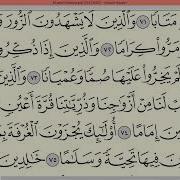 مَتَابًا ﴿٧١﴾ وَالَّذِينَ لَا يَشْهَدُونَ الزُّورَ
مَرُّوا كِرَامًا ﴿٧٢﴾ وَالَّذِينَ إِذَا
لَمْ يَخِرُّوا عَلَيْهَا صُمًّا وَعُمْيَانًا ﴿٧٣﴾ وَالَّذِينَ
لَنَا مِنْ أَزْوَاجِنَا وَذُرِّيَّاتِنَا قُرَّةَ
إِمَامًا ﴿٧٤﴾ أُولَٰئِكَ يُجْزَوْنَ الْغُرْفَةَ
فِيهَا تَحِيَّةً وَسَلَامًا ﴿٧٥﴾ خَالِدِينَ